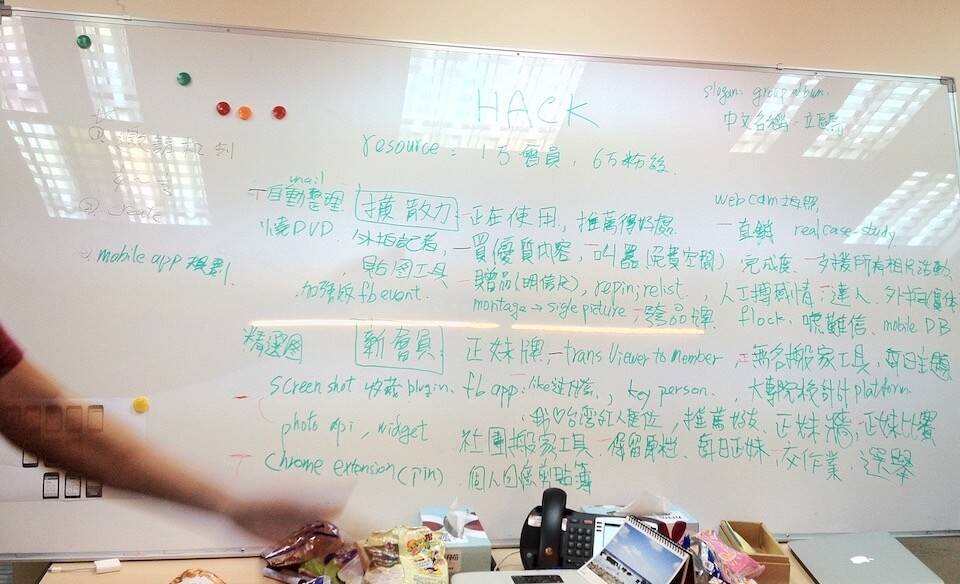 HACK
slogan: group album.
中文名稱:
resource: 1万會員, 6万粉絲
① 邀請机制
mobile app 規劃
mail
自動整理
擴散力
正在使用, 推薦得好處
燒DVD.
外拍記者,
買優質內容, 叫器(免費空間)
貼圖工具
加強版 fb event.
贈品(明信片), repin; relist.
montage → sigle picture
跨品牌
web cam 拍照
直銷 real case-study
完成度. 支援所有相片活動,
人工搏感情; 達人. 外拍
flock. 號難信. mobile DB
精選圖
新會員
正妹牌 — trans Viewer to Member
無名搬家工具, 每日主題
screen shot 收藏 plugin.
fb app: like
key person.
大專院校 設計 platform
我♡台灣
推薦好友, 正妹牆, 正妹比賽
photo api, widget
社團搬家工具,
每日正妹, 交作業, 選舉
chrome extension (pin)
個人 剪貼簿